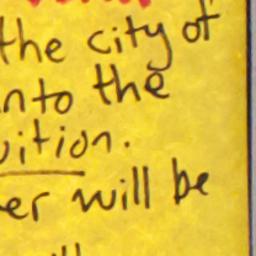 the city of
nto the
uition.
er will be